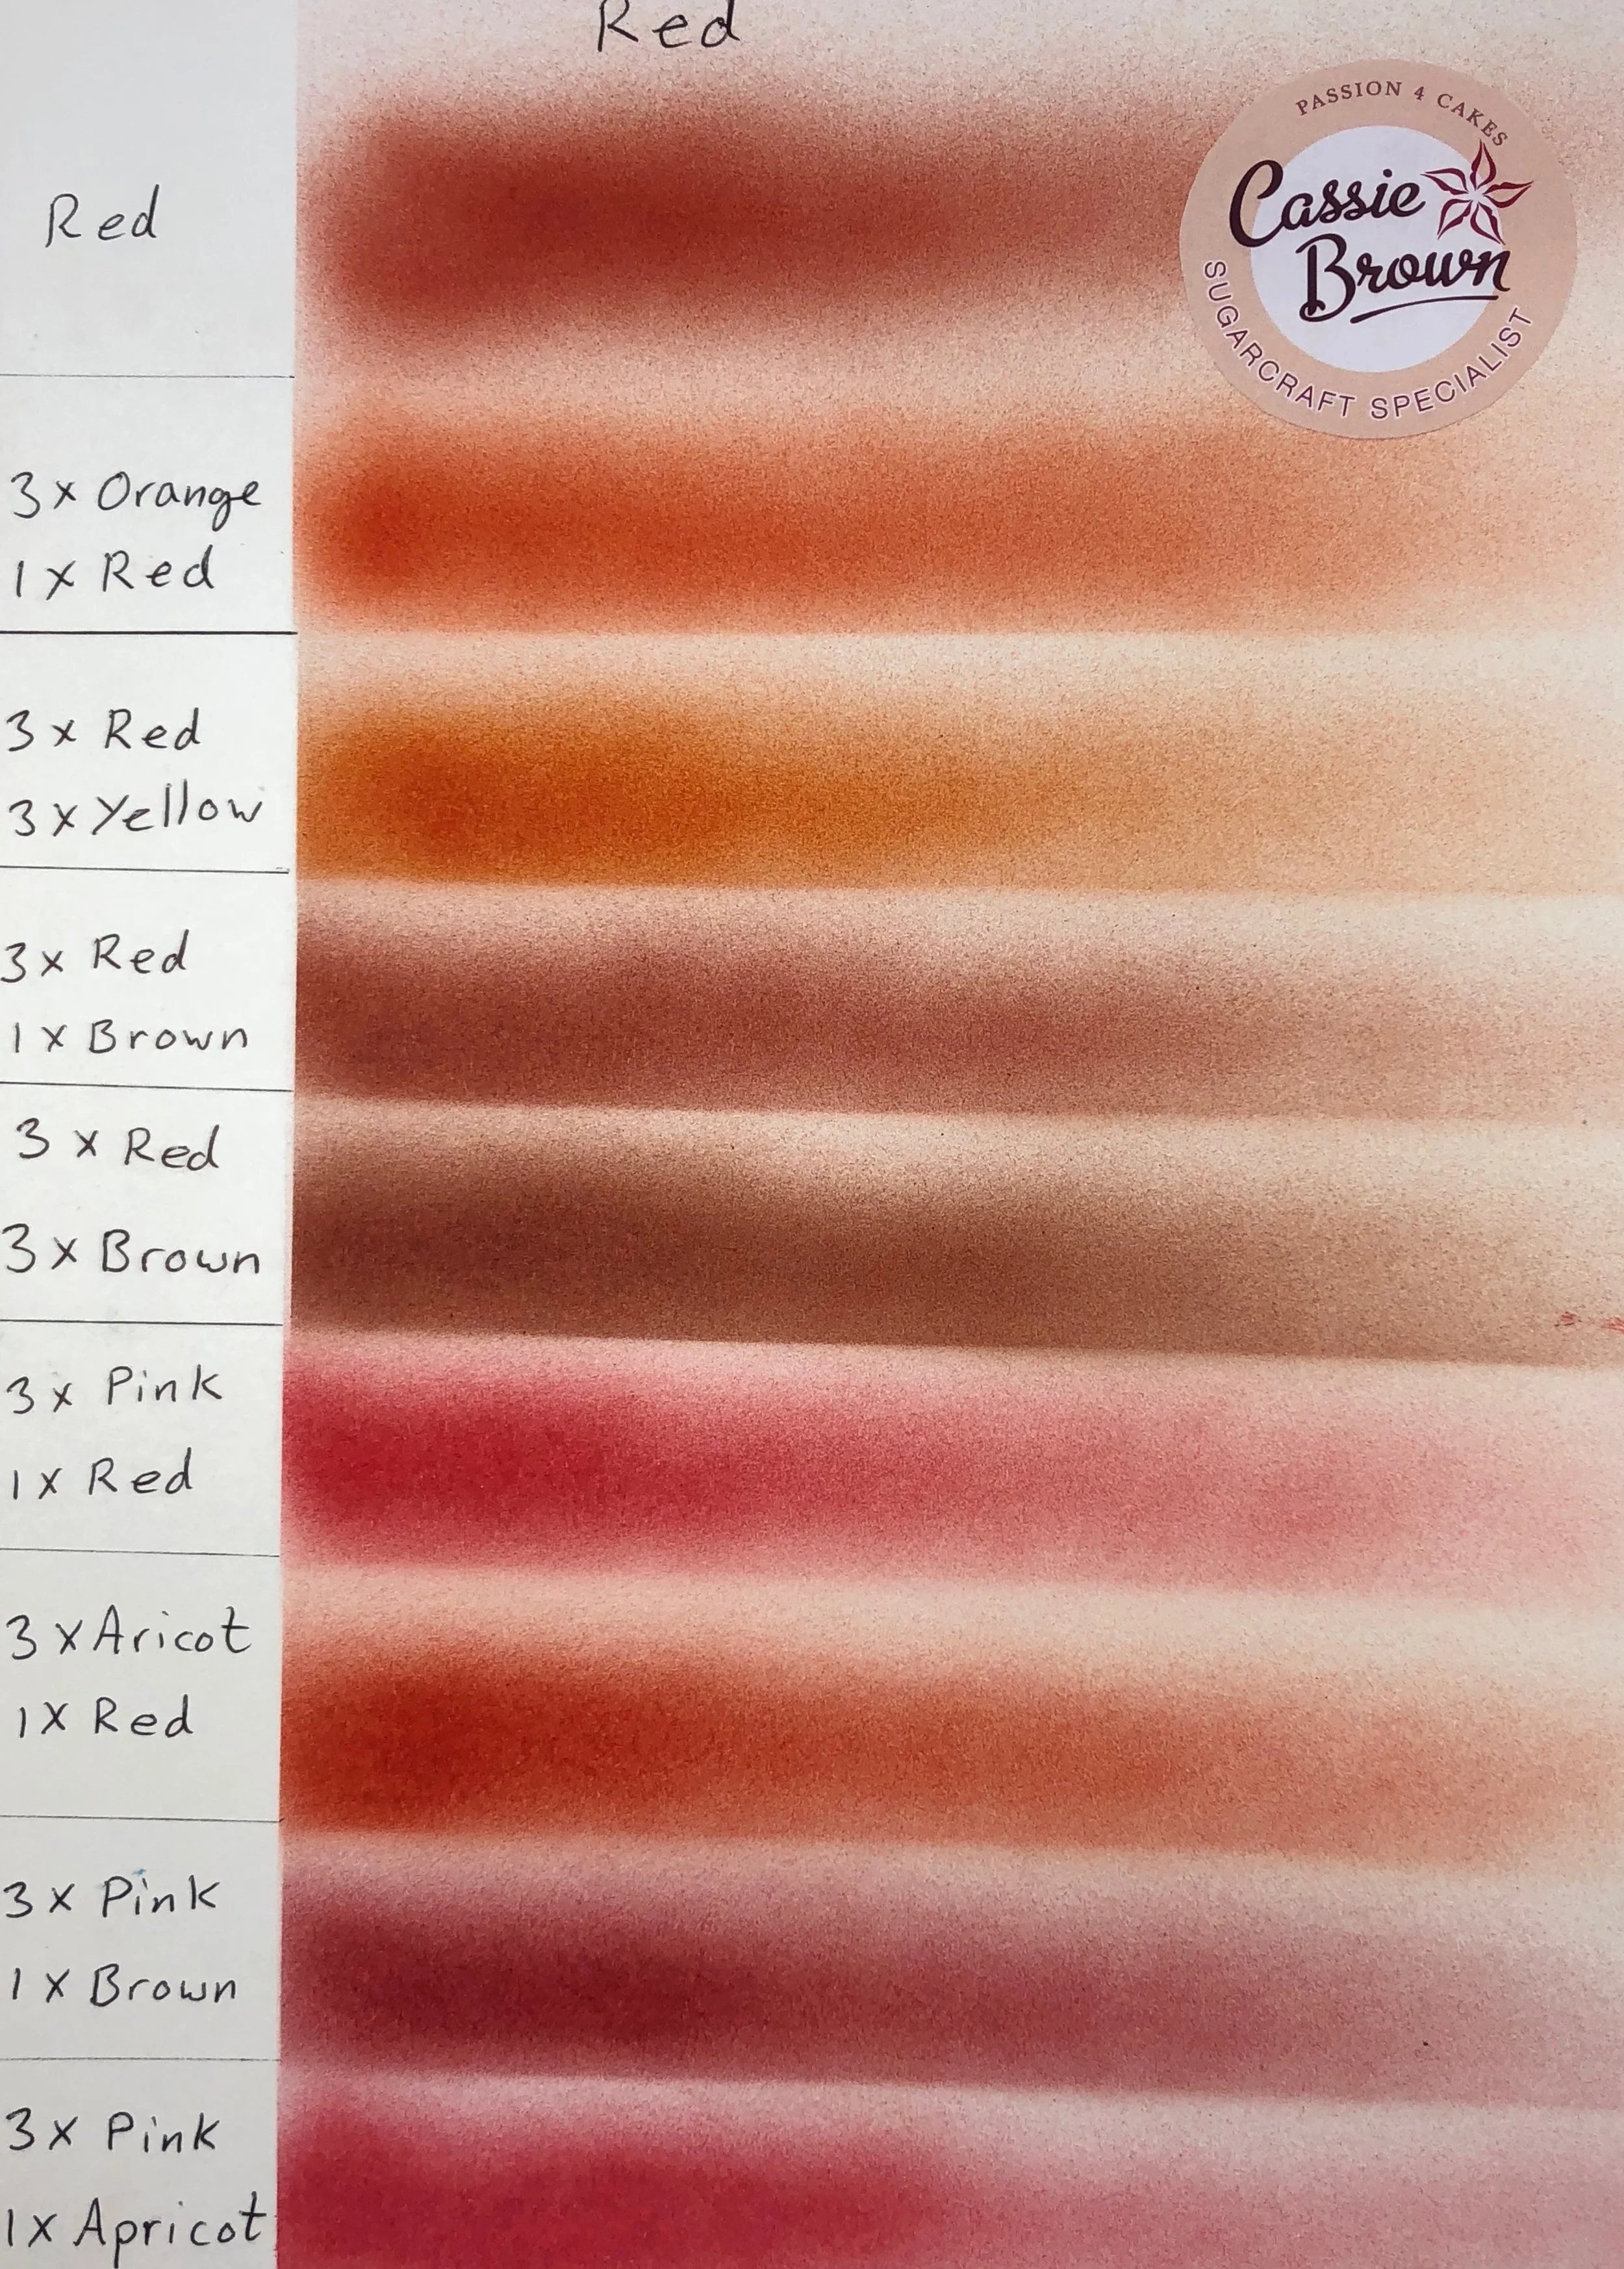 Red
PASSION 4 CAKES
Cassie
Brown
SUGARCRAFT SPECIALIST
Red
3 x Orange
1 x Red
3 x Red
3 x Yellow
3 x Red
1 x Brown
3 x Red
3 x Brown
3 x Pink
1 x Red
3 x Aricot
1 X Red
3 x Pink
1 x Brown
3 x Pink
1 x Apricot